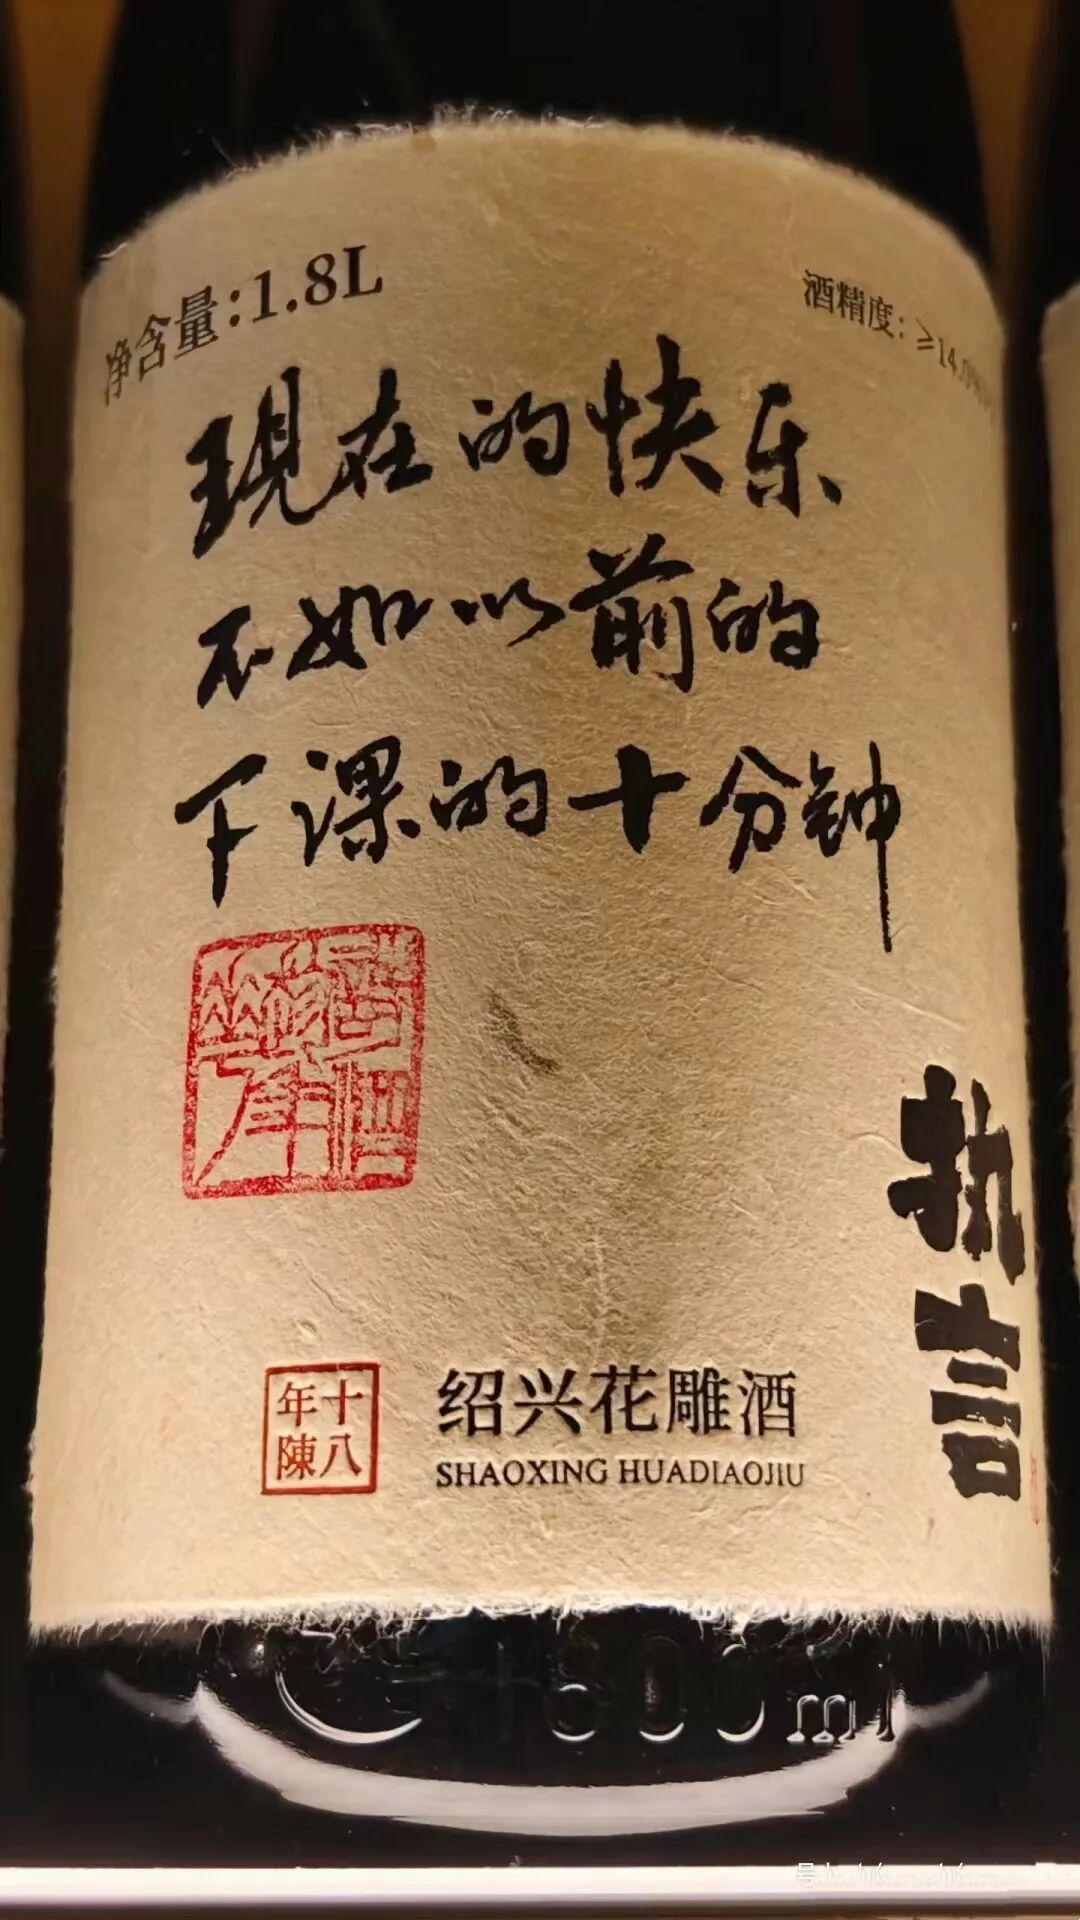 净含量:1.8L
酒精度:≥14.0%
现在的快乐
不如以前的
下课的十分钟
执言
十八年陳
绍兴花雕酒
SHAOXING HUADIAOJIU
1800ml